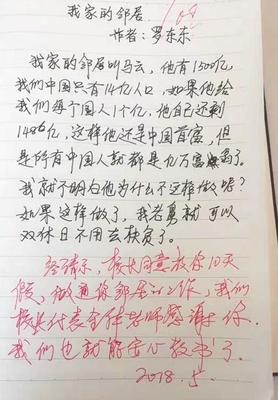 我家的邻居
作者：罗东东
我家的邻居叫马云，他有1500亿，
我们中国只有14亿人口，如果他给
我们每个国人1个亿，他自己还剩
1486亿，这样他还是中国首富，但
是所有中国人就都是亿万富翁了。
我就不明白他为什么不这样做呢？
如果这样做了，我老舅就可以
双休日不用去扶贫了。
经请示，校长同意放你10天
假，做通你邻居的工作，我们
校长代表全体老师感谢你，
我们也就能安心教书了。
2018.5.